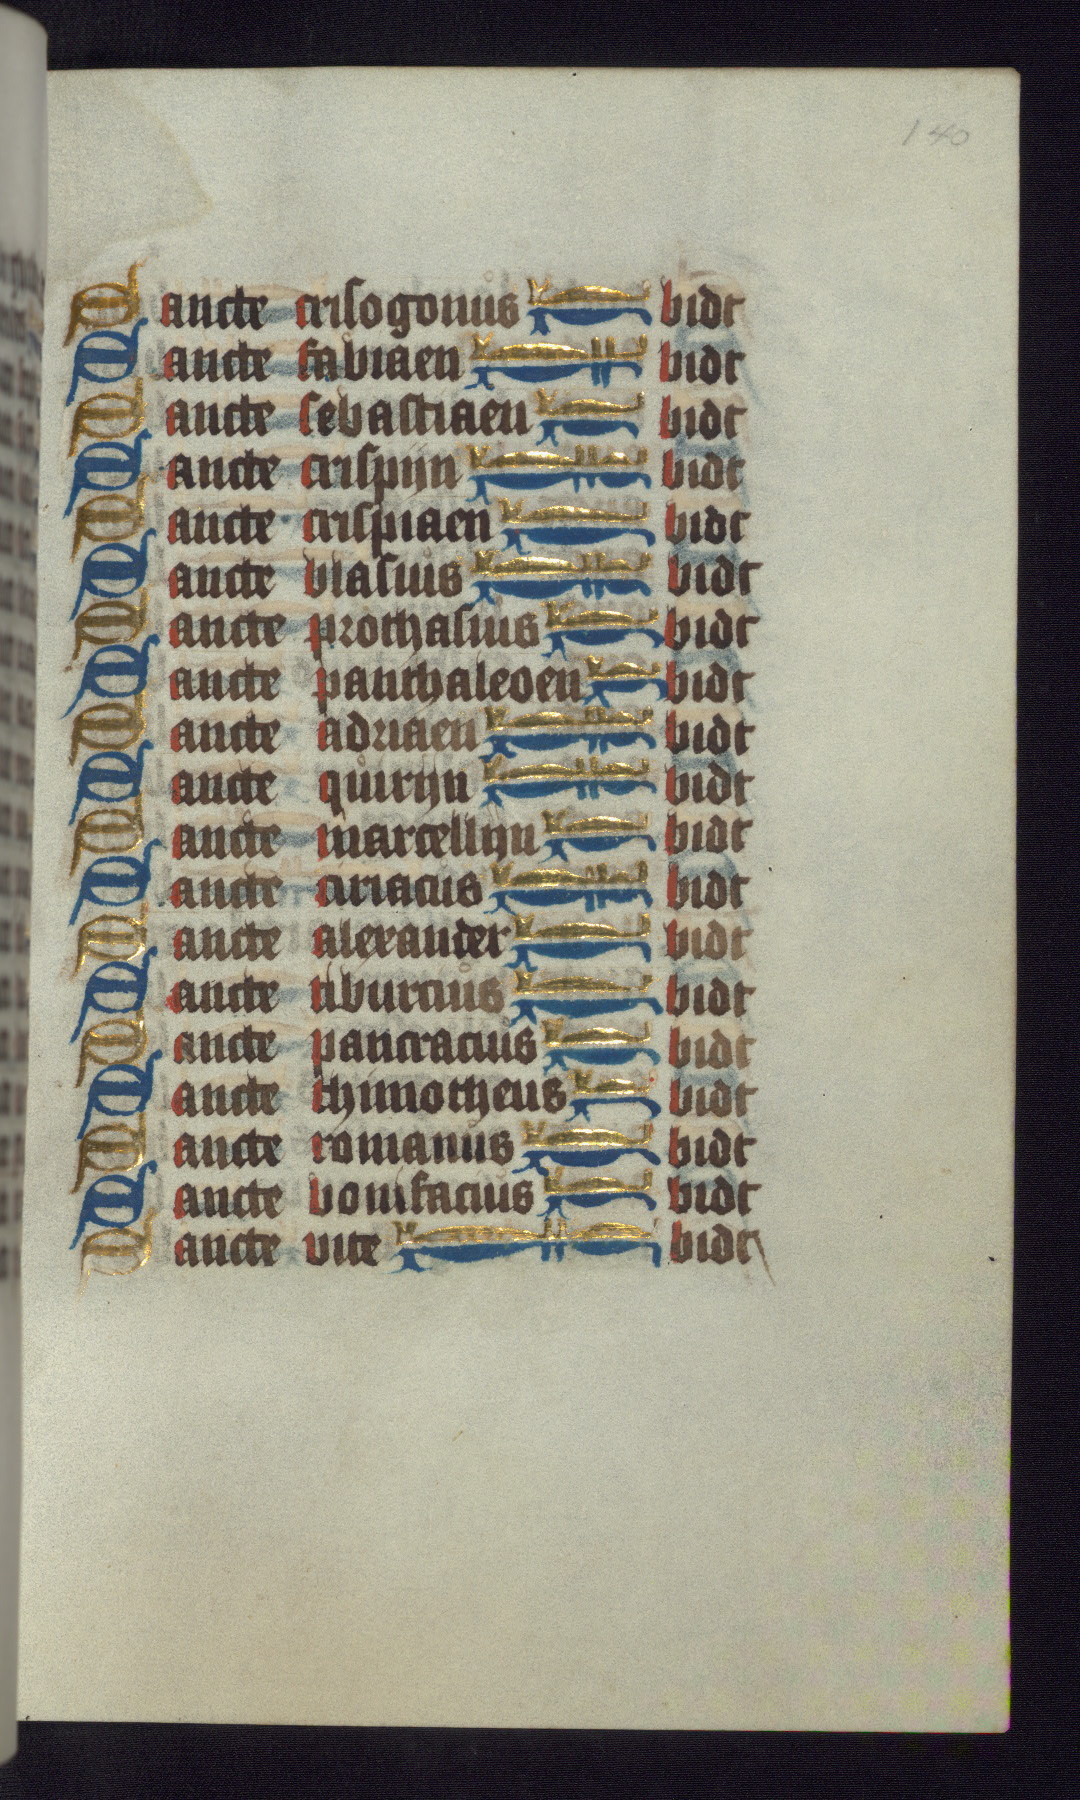 140
Sancte crisogonus bidt
Sancte fabiaen bidt
Sancte sebastiaen bidt
Sancte crispijn bidt
Sancte crispiaen bidt
Sancte blasius bidt
Sancte prothasius bidt
Sancte panthaleoen bidt
Sancte adriaen bidt
Sancte quirijn bidt
Sancte marcellijn bidt
Sancte ciriacus bidt
Sancte alexander bidt
Sancte tiburcius bidt
Sancte pancracius bidt
Sancte thimotheus bidt
Sancte romanus bidt
Sancte bonifacius bidt
Sancte vite bidt